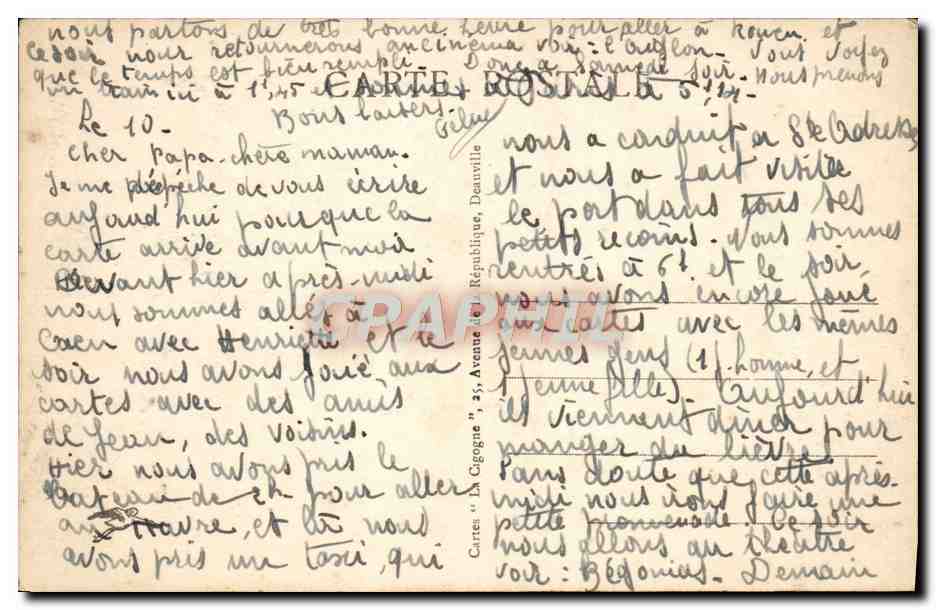 Le 10-
Cher Papa-chère maman.
Je me dépêche de vous écrire
aujourd'hui pour que la
carte arrive avant moi
Devant hier après-midi
nous sommes allés à
Caen avec Henriette et le
soir nous avons joué aux
cartes avec des amis
de Jean, des voisins.
Hier nous avons pris le
bateau de 2h pour aller
au Havre, et là nous
avons pris un taxi, qui
nous a conduit a Ste Adresse
et nous a fait visiter
le port dans tous ses
petits recoins. Nous sommes
rentrés à 6h et le soir,
nous avons encore joué
aux cartes avec les mêmes
jeunes gens (1 j. homme, et
1 jeune fille). Aujourd'hui
ils viennent dîner pour
manger du lièvre
Sans doute que cette après-
midi nous irons faire une
petite promenade. Ce soir
nous allons au théâtre
voir : Bégonias- Demain
nous partons de très bonne heure pour aller à Rouen et
ce soir nous retournerons au cinéma voir : l'Aiglon. Vous voyez
que le temps est bien rempli. Donc a Samedi soir. Nous prenons
un train ici à 1h,45 et à 5h,14.
Bons baisers
CARTE POSTALE
Cartes " La Cigogne ", 25, Avenue de la République, Deauville
CPAPHIL